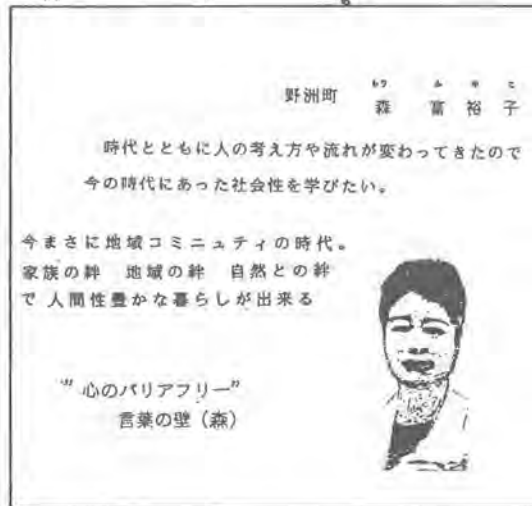 野洲町 森 富裕子
時代とともに人の考え方や流れが変わってきたので
今の時代にあった社会性を学びたい。
今まさに地域コミニュティの時代。
家族の絆 地域の絆 自然との絆
で 人間性豊かな暮らしが出来る
” 心のバリアフリー”
言葉の壁（森）